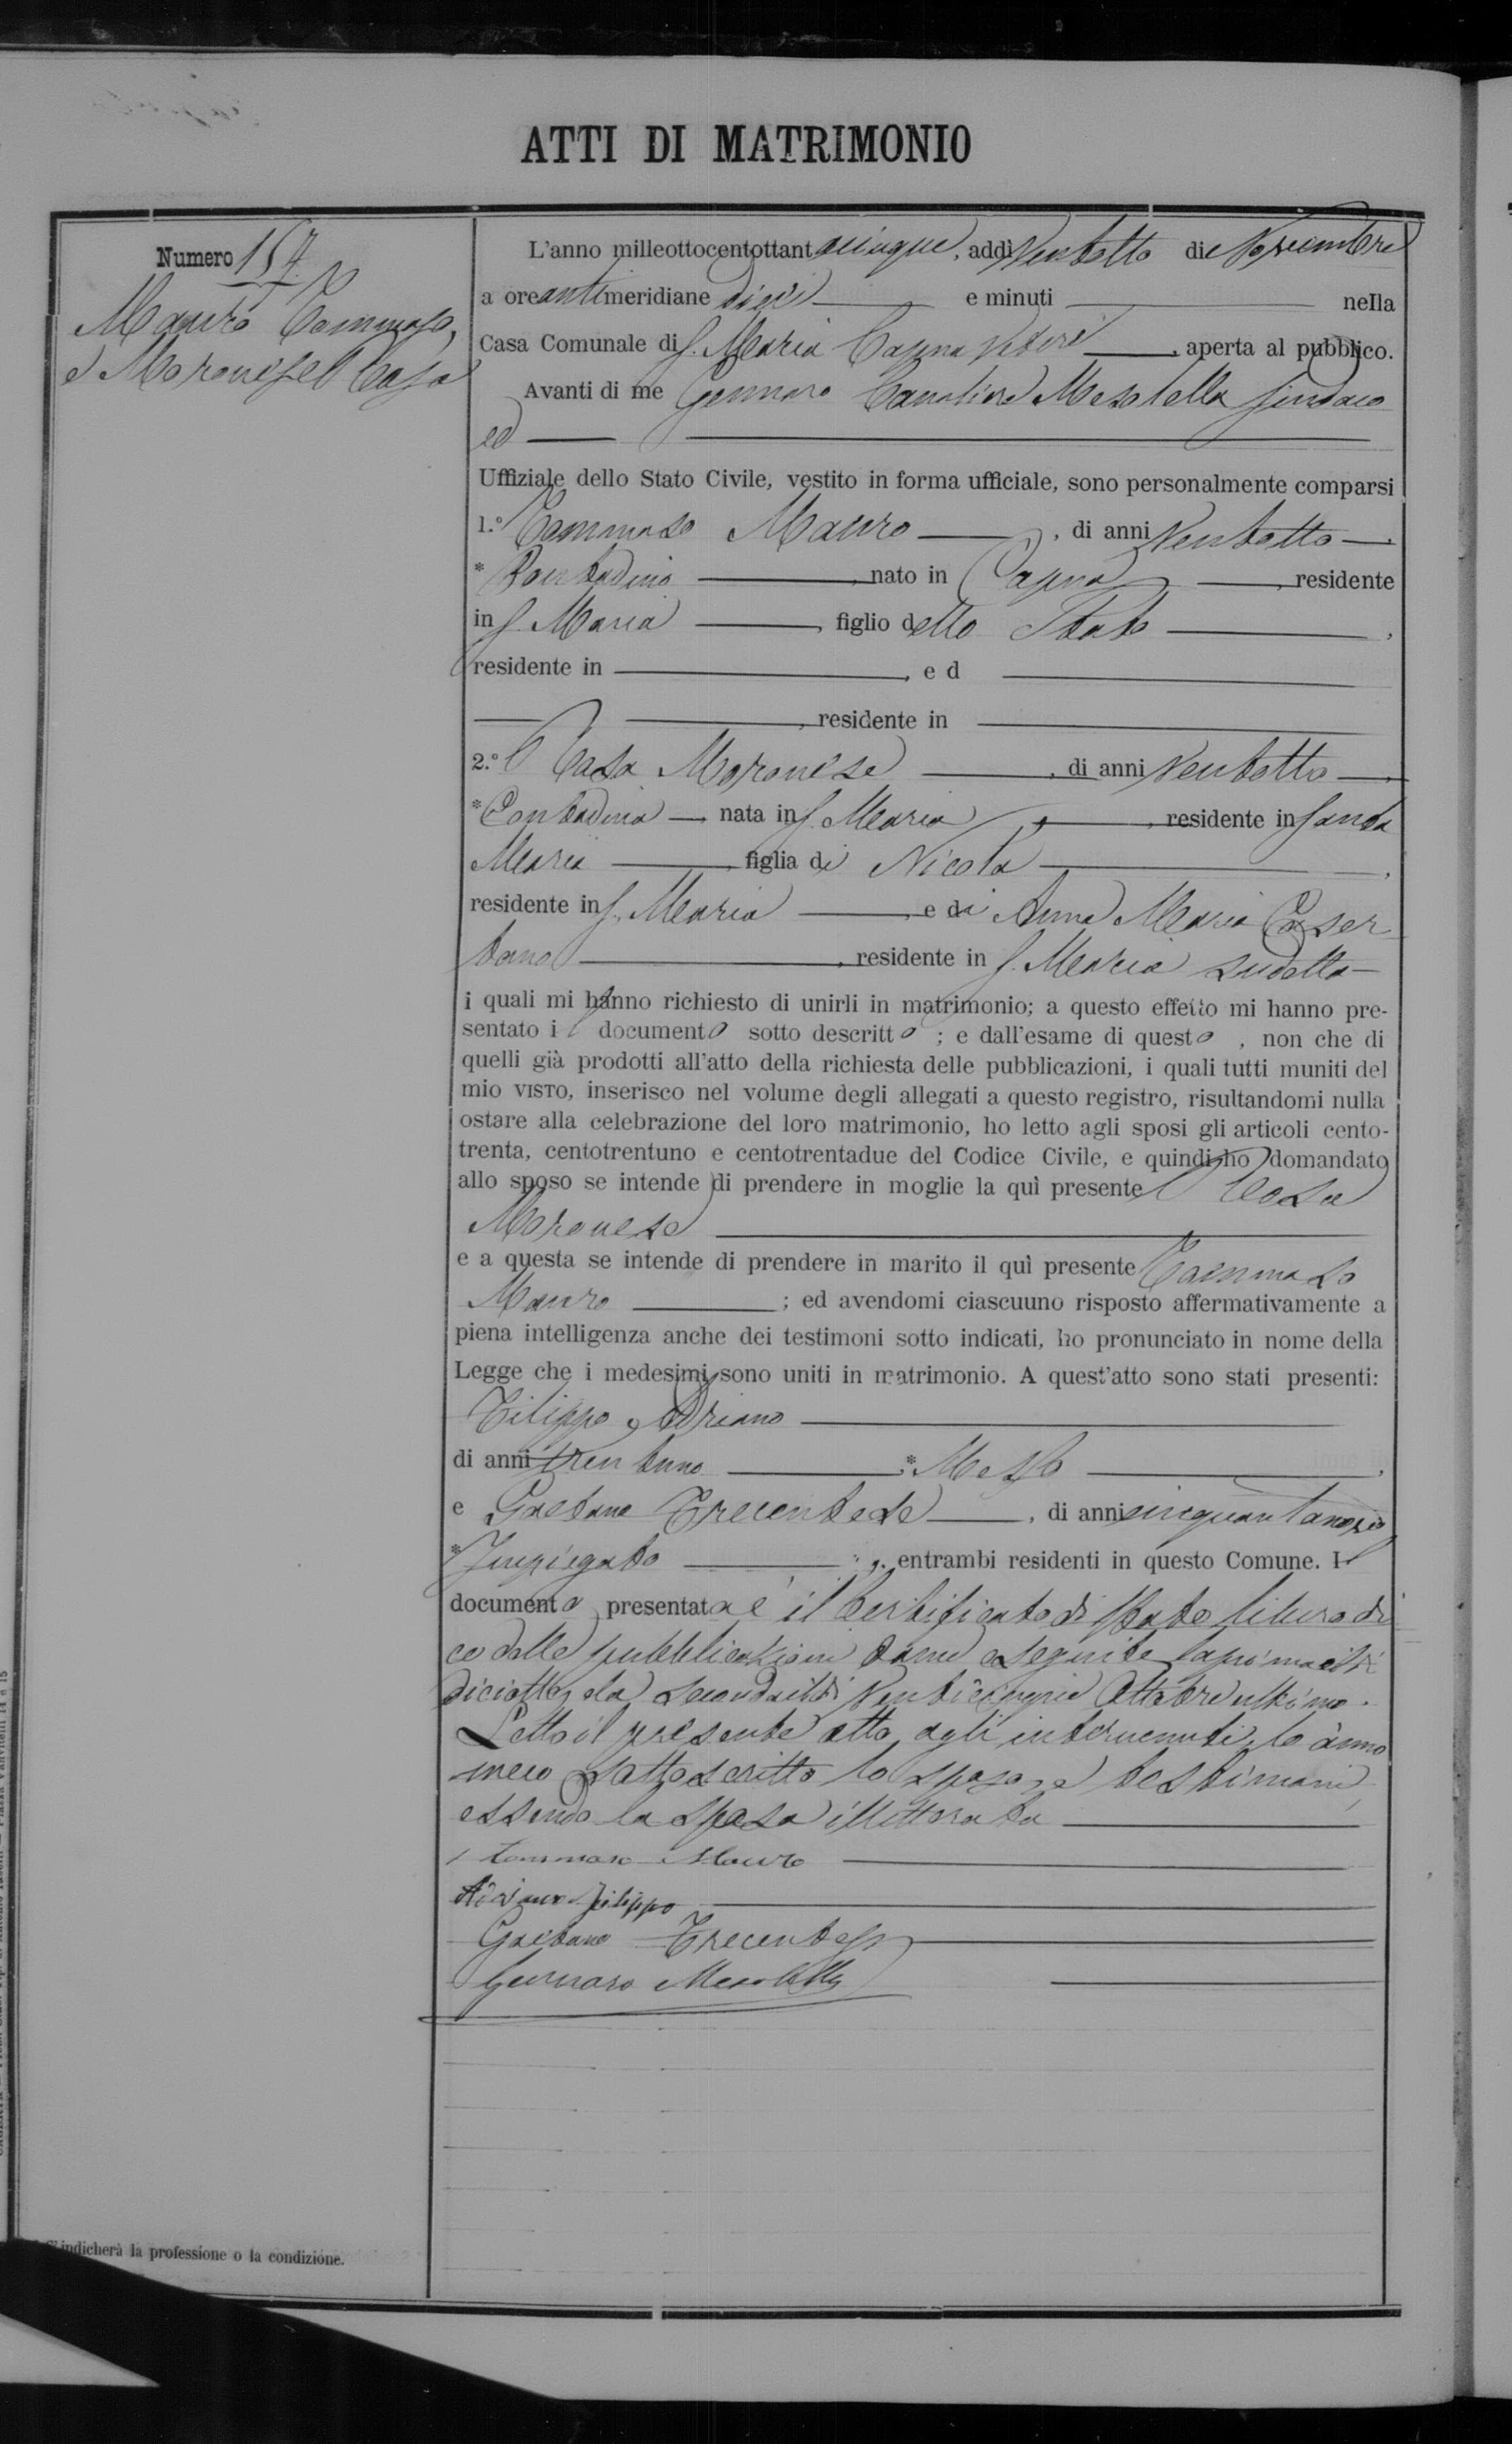 ATTI DI MATRIMONIO
Numero 157
Mauro Tommaso,
e Moronese Rosa
L'anno milleottocentottantacinque, addì Ventotto di Novembre
a ore antimeridiane dieci e minuti nella
Casa Comunale di S. Maria Capua Vetere, aperta al pubblico.
Avanti di me Gennaro Cavaliere Sindaco
ed
Uffiziale dello Stato Civile, vestito in forma ufficiale, sono personalmente comparsi
1.º Tommaso Mauro, di anni Ventotto,
* Contadino nato in Capua, residente
in S. Maria, figlio dello Stato,
residente in, e d
, residente in
2.º Rosa Moronese, di anni Ventotto,
* Contadina, nata in S. Maria, residente in Santa
Maria figlia di Nicola,
residente in S. Maria e di Anna Maria Caser
tano, residente in S. Maria sudetta
i quali mi hanno richiesto di unirli in matrimonio; a questo effetto mi hanno pre-
sentato il documento sotto descritto; e dall'esame di questo, non che di
quelli già prodotti all'atto della richiesta delle pubblicazioni, i quali tutti muniti del
mio VISTO, inserisco nel volume degli allegati a questo registro, risultandomi nulla
ostare alla celebrazione del loro matrimonio, ho letto agli sposi gli articoli cento-
trenta, centotrentuno e centotrentadue del Codice Civile, e quindi ho domandato
allo sposo se intende di prendere in moglie la quì presente Rosa
Moronese
e a questa se intende di prendere in marito il quì presente Tommaso
Mauro; ed avendomi ciascuuno risposto affermativamente a
piena intelligenza anche dei testimoni sotto indicati, ho pronunciato in nome della
Legge che i medesimi sono uniti in matrimonio. A quest'atto sono stati presenti:
Filippo Adriano
di anni trentuno, * Messo,
e Gaetano Trecentese, di anni cinquantanove
* Impiegato, entrambi residenti in questo Comune. Il
documento presentato è il Certificato di
ce delle pubblicazioni eseguite la prima il dì
diciotto, e la seconda il dì Venticinque Ottobre ultimo.
Letto il presente atto agli intervenuti, lo ànno
meco sottoscritto lo sposo, e testimoni,
essendo la sposa illetterata
Tommaso Mauro
Adriano Filippo
Gaetano Trecentese
Gennaro
indicherà la professione o la condizione.